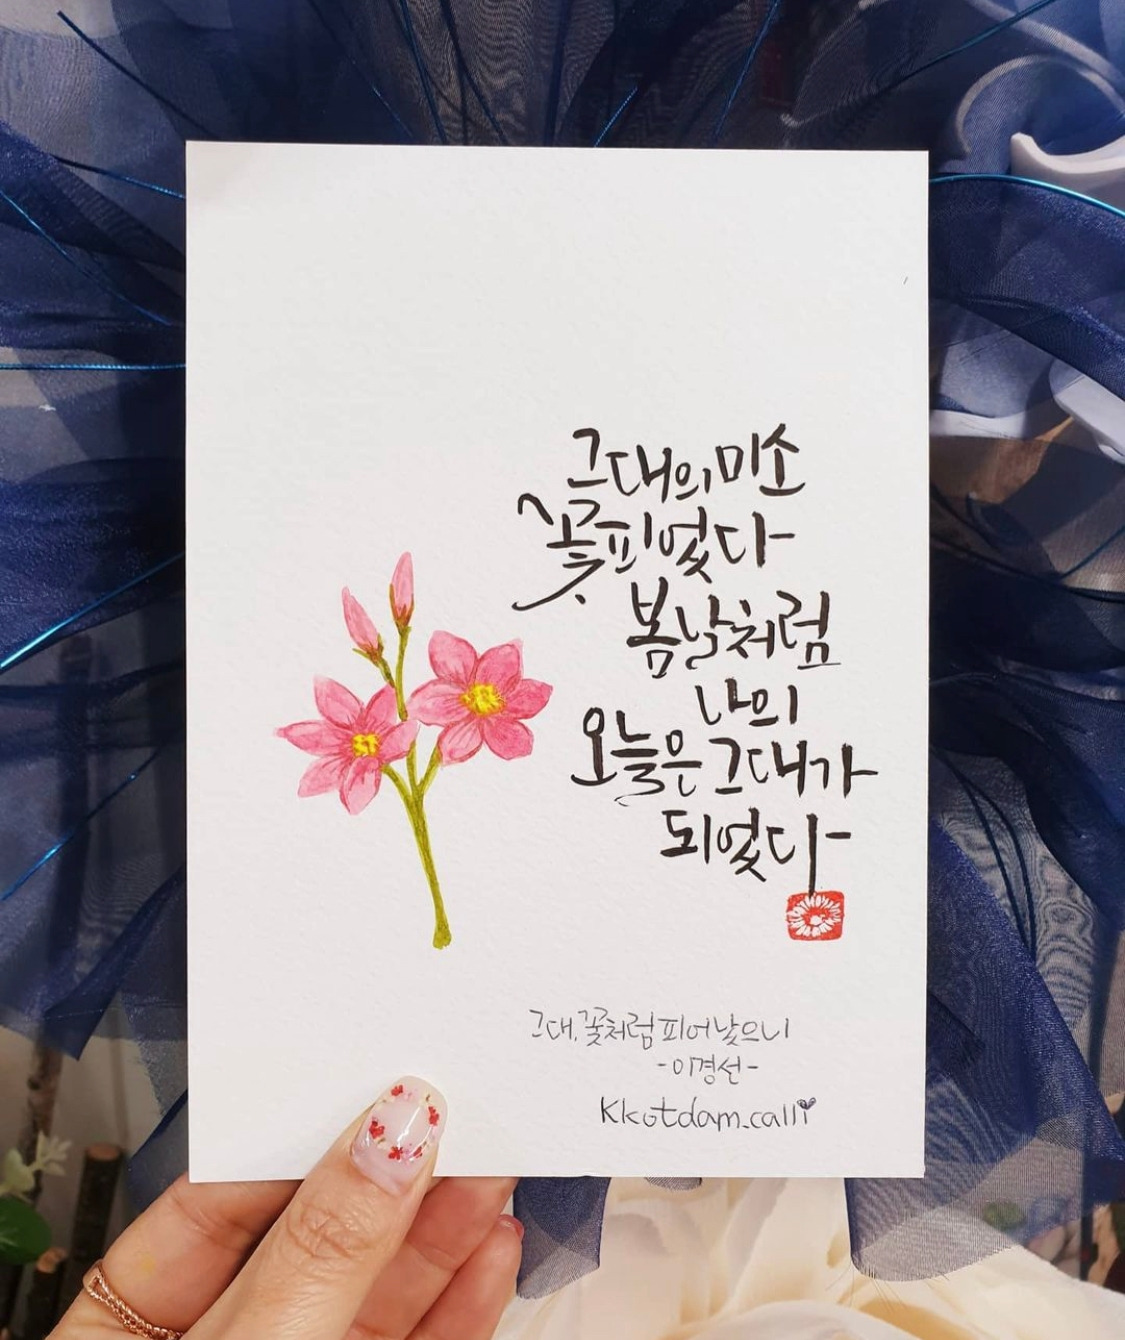 그대의 미소
꽃피었다
봄날처럼
나의
오늘은 그대가
되었다
그대, 꽃처럼 피어났으니
-이경선-
kkotdam.calli